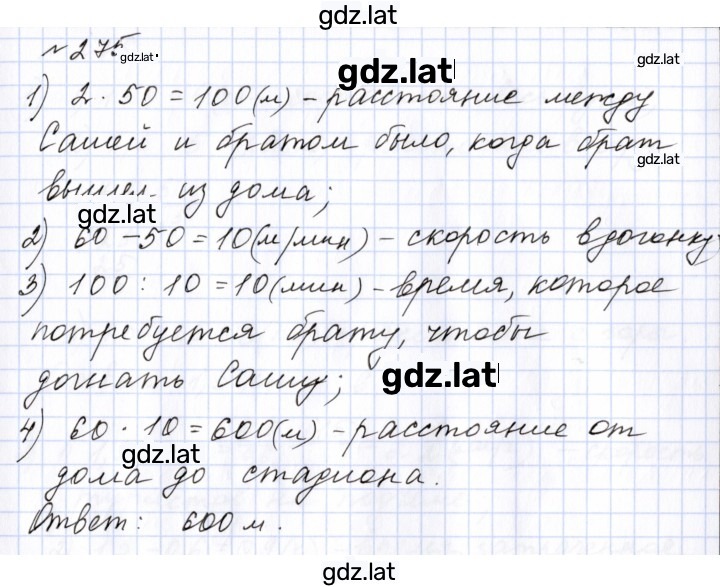 gdz.lat
№ 275.
gdz.lat
gdz.lat
1) 2 · 50 = 100 (м) – расстояние между
Сашей и братом было, когда брат
gdz.lat
вышел из дома;
gdz.lat
2) 60 – 50 = 10 (м/мин) – скорость вдогонку;
3) 100 : 10 = 10 (мин) – время, которое
потребуется брату, чтобы
догнать Сашу;
gdz.lat
4) 60 · 10 = 600 (м) – расстояние от
gdz.lat
дома до стадиона.
Ответ: 600 м.
gdz.lat